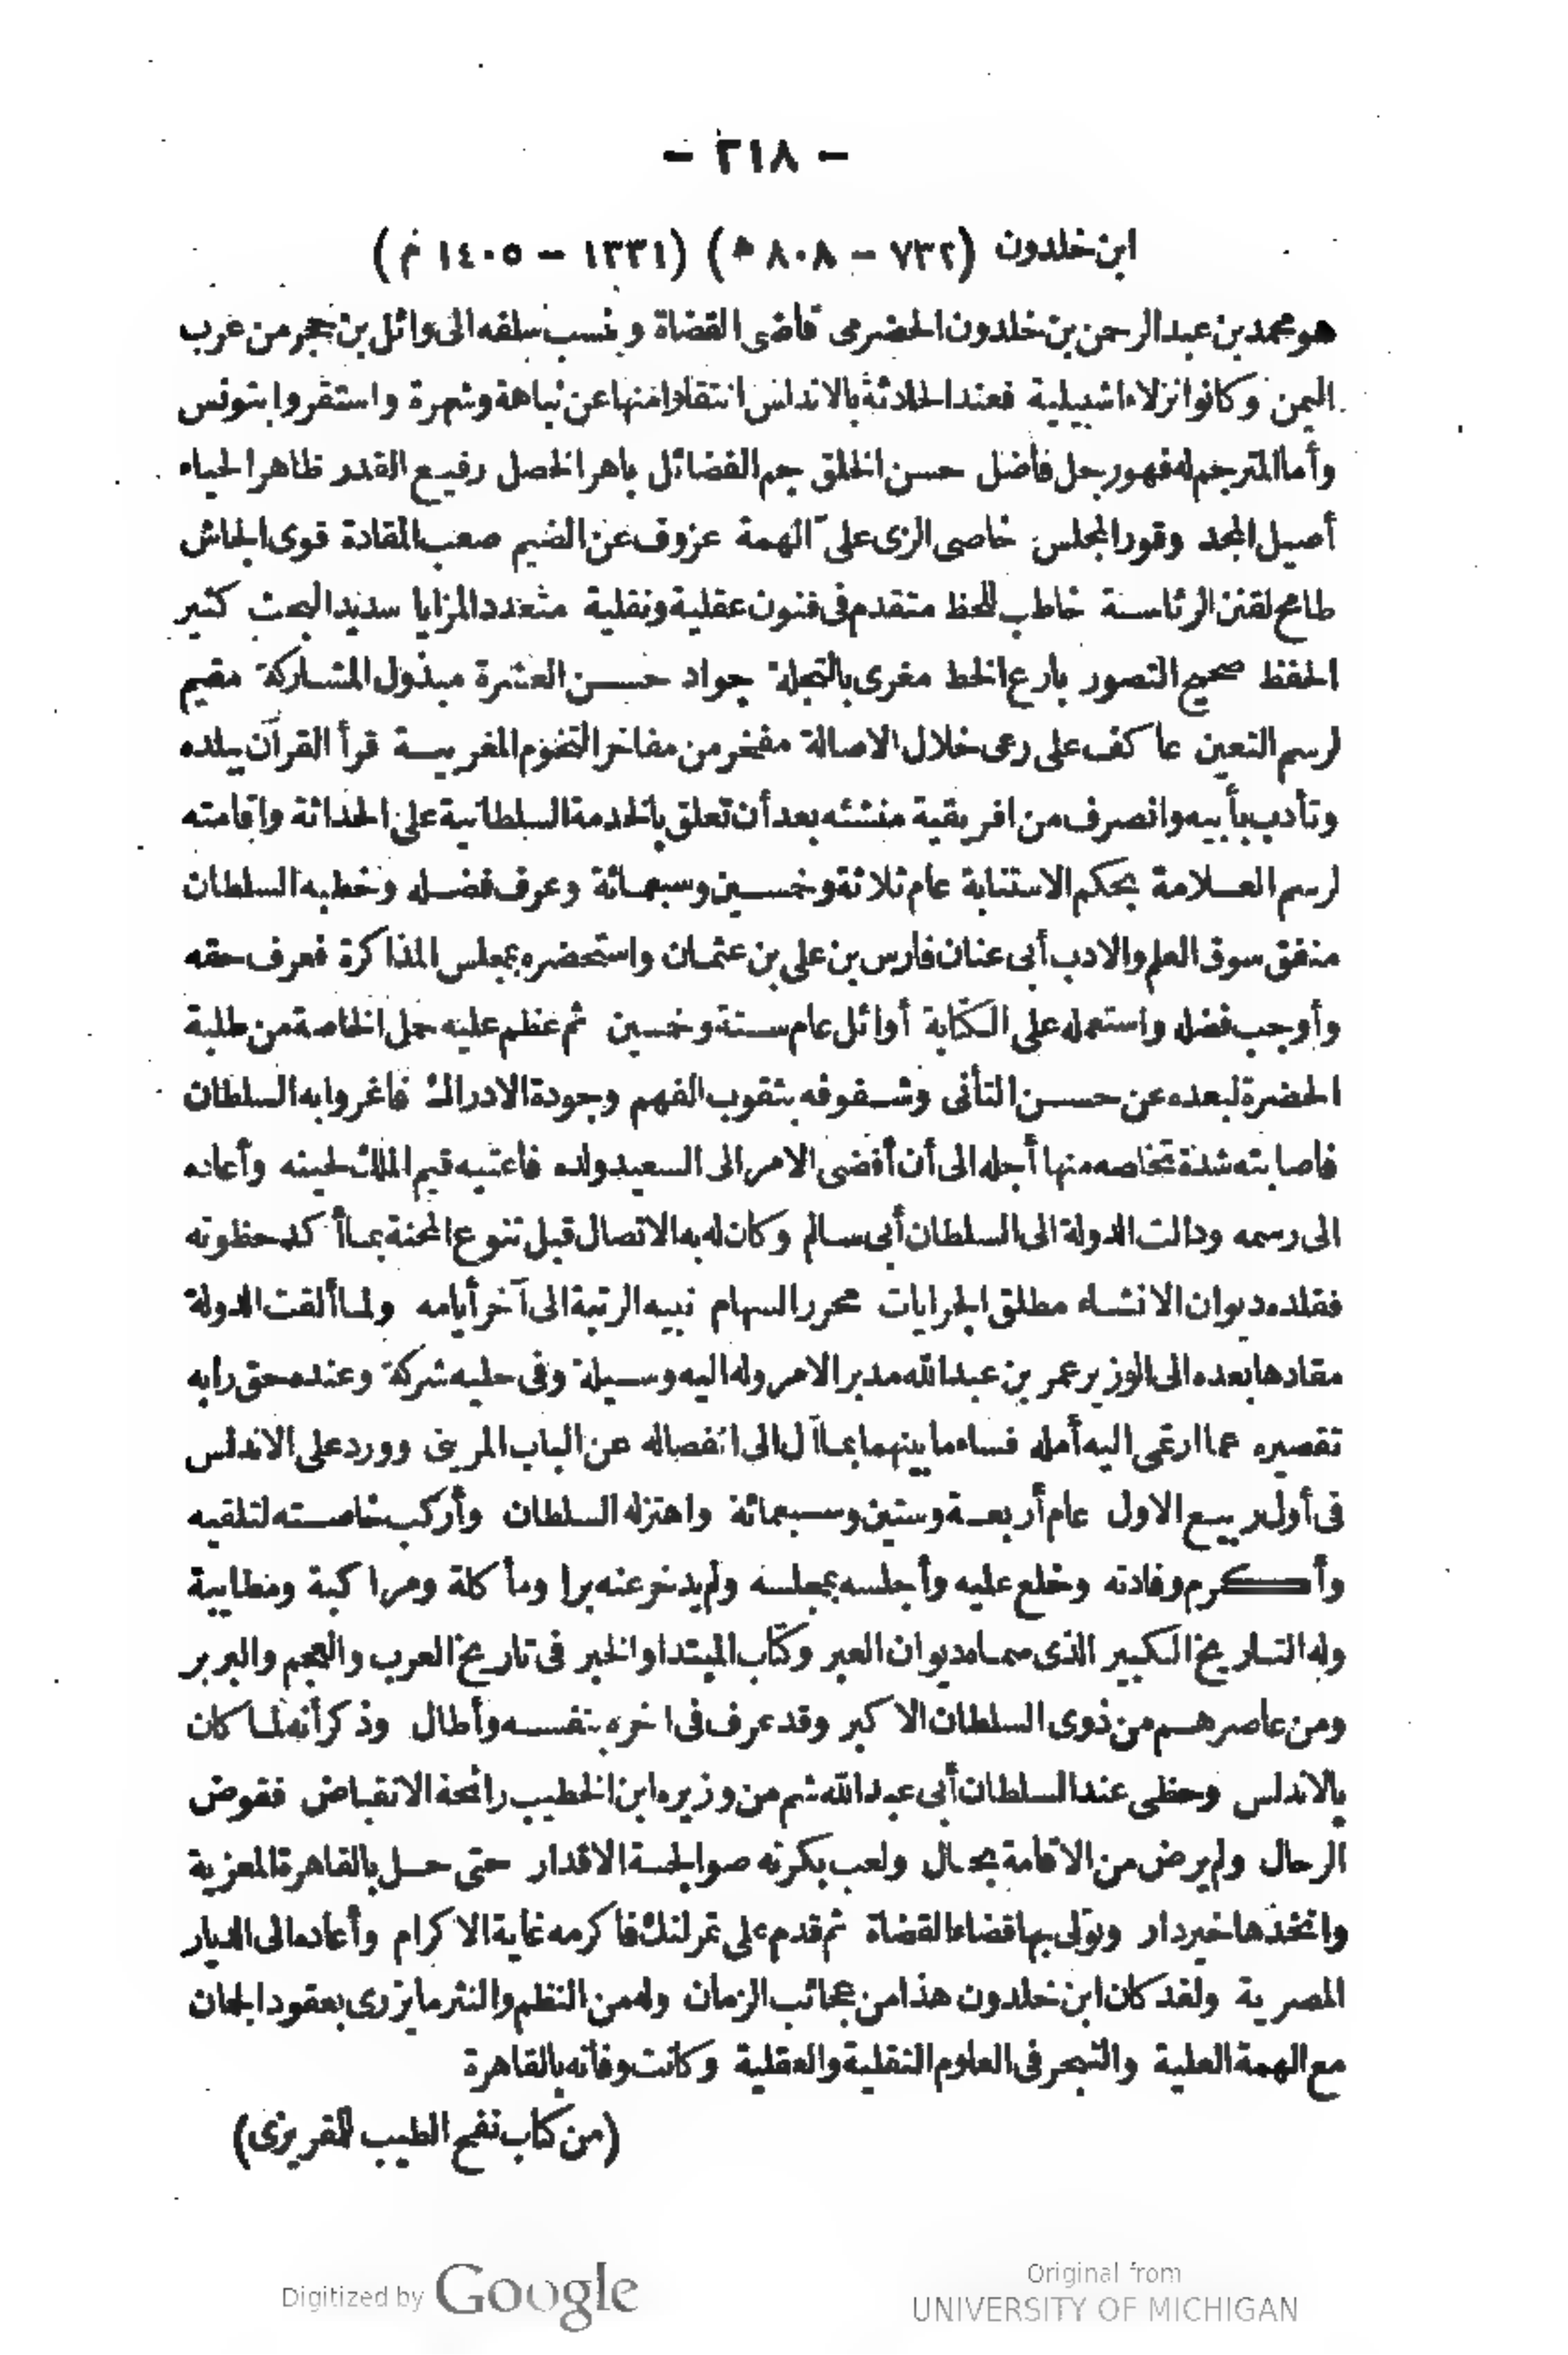 - ٣١٨ -
ابن خلدون (٧٣٢ - ٨٠٨ ه) (١٣٣١ - ١٤٠٥ م)
هو محمد بن عبد الرحمن بن خلدون الحضرمى قاضى القضاة ونسب سلفه الى وائل بن حجر من عرب
اليمن وكانوا نزلاء اشبيلية فعند الحادثة بالاندلس انتقلوا منها عن نباهة وشهرة واستقروا بتونس
وأما المترجم له فهو رجل فاضل حسن الخلق جم الفضائل باهر الخصل رفيع القدر ظاهر الحياء
أصيل المجد وقور المجلس خاصى الزى على الهمة عزوف عن الضيم صعب المقادة قوى الجاش
طامح لقنن الرئاسة خاطب للحظ متقدم فى فنون عقلية ونقلية متعدد المزايا سديد البحث كثير
الحفظ صحيح التصور بارع الخط مغرى بالتجلة جواد حسن العشرة مبذول المشاركة مقيم
لرسم التعين عاكف على رعى خلال الاصالة مفخر من مفاخر التخوم المغربية قرأ القرآن ببلده
وتأدب بأبيه وانصرف من افريقية منشئه بعد أن تعلق بالخدمة السلطانية على الحداثة واقامته
لرسم العلامة بحكم الاستنابة عام ثلاثة وخمسين وسبعمائة وعرف فضله وخطبه السلطان
منفق سوق العلم والادب أبى عنان فارس بن على بن عثمان واستحضره بمجلس المذاكرة فعرف حقه
وأوجب فضله واستعمله على الكتابة أوائل عام ستة وخمسين ثم عظم عليه حمل الخاصة من طلبة
الحضرة لبعده عن حسن التأنى وشفوفه بثقوب الفهم وجودة الادراك فاغروا به السلطان
فاصابته شدة تخلصه منها أجله الى أن أفضى الامر الى السعيد ولده فاعتبه قيم الملك لحينه وأعاده
الى رسمه ودالت الدولة الى السلطان أبى سالم وكان له به الاتصال قبل تنوع المحنة بما أكد حظوته
فقلده ديوان الانشاء مطلق الجرايات محرر السهام نبيه الرتبة الى آخر أيامه ولما ألقت الدولة
مقادها بعده الى الوزير عمر بن عبد الله مدبر الامر وله اليه وسيلة وفى حليه شركة وعنده حق رابه
تقصيره عما ارتمى اليه أمله فساء ما بينهما بما آل الى انفصاله عن الباب المرينى وورد على الاندلس
فى أول ربيع الاول عام أربعة وستين وسبعمائة واهتز له السلطان وأركب خاصته لتلقيه
وأكرم وفادته وخلع عليه وأجلسه بمجلسه ولم يدخر عنه برا ومأ كلة ومراكبة ومطايبة
وله التاريخ الكبير الذى سماه ديوان العبر وكتاب المبتدا والخبر فى تاريخ العرب والعجم والبربر
ومن عاصرهم من ذوى السلطان الاكبر وقد عرف فى اخره بنفسه وأطال وذكر أنه لما كان
بالاندلس وحظى عند السلطان أبى عبد الله شم من وزيره ابن الخطيب رائحة الانقباض فقوض
الرحال ولم يرض من الاقامة بحال ولعب بكرته صوالجة الاقدار حتى حل بالقاهرة المعزية
واتخذها خير دار وتولى بها قضاء القضاة ثم قدم على تمرلنك فاكرمه غاية الاكرام وأعاده الى الديار
المصرية ولقد كان ابن خلدون هذا من عجائب الزمان وله من النظم والنثر ما يزرى بعقود الجمان
مع الهمة العلية والتبحر فى العلوم النقلية والعقلية وكانت وفاته بالقاهرة
(من كتاب نفح الطيب للمقريزى)
Digitized by Google
Original from
UNIVERSITY OF MICHIGAN